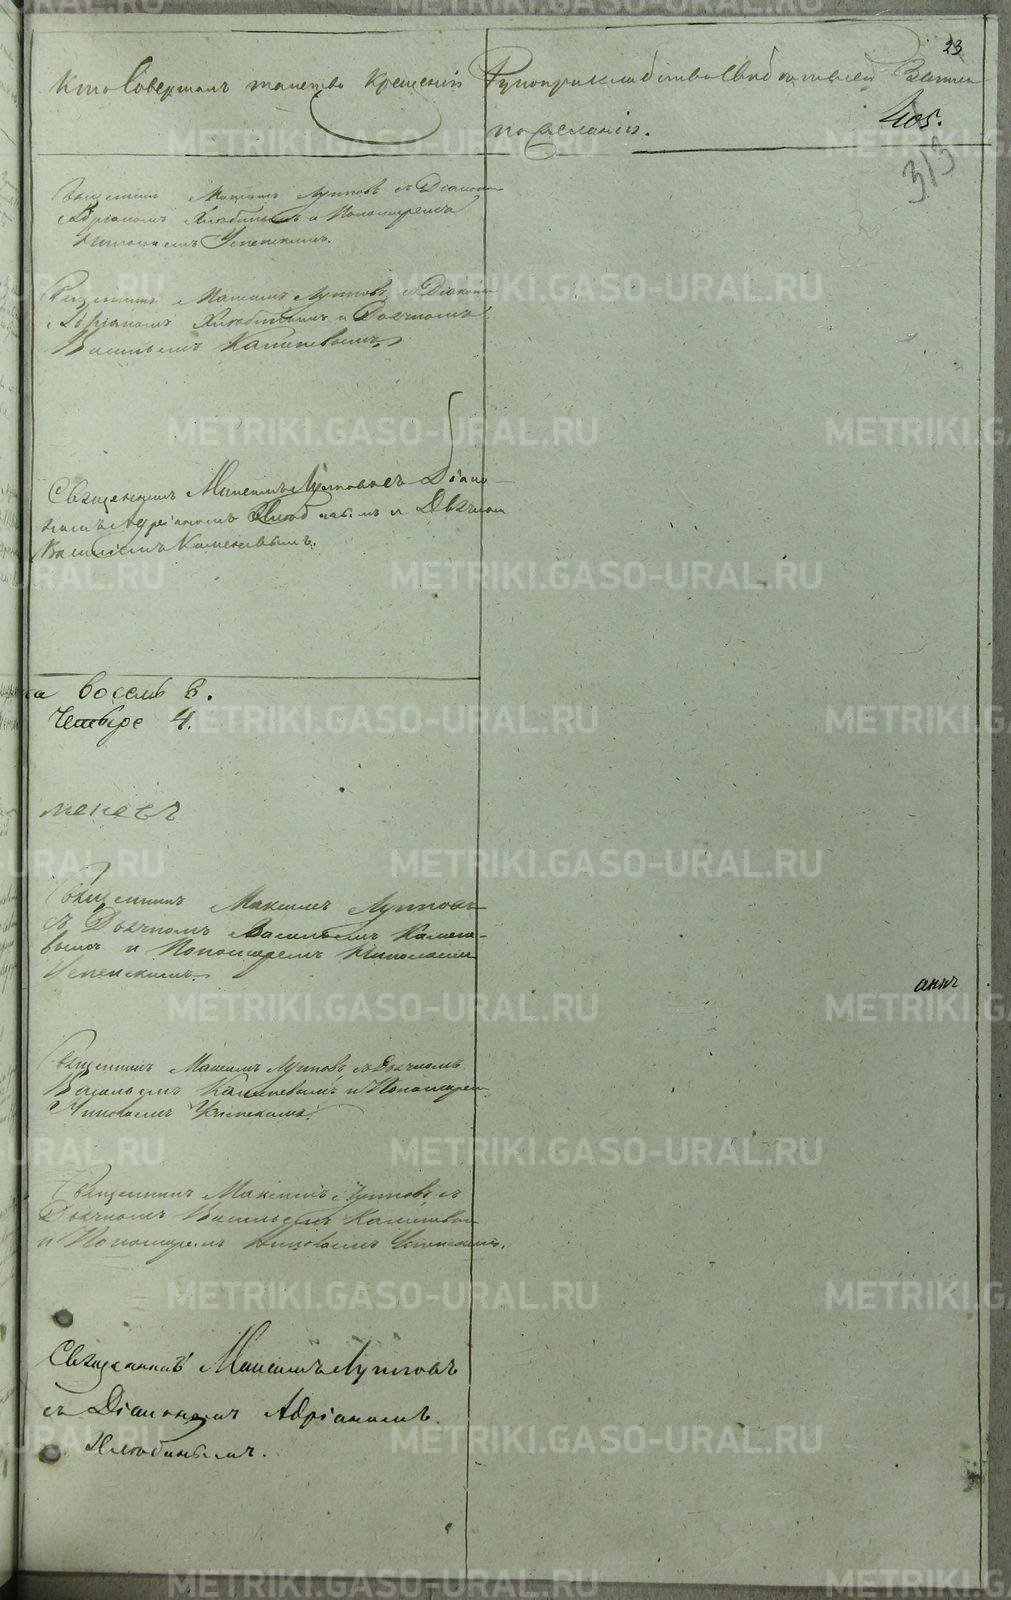 23
Кто Совершалъ таинство Крещенiя
Рукоприкладство Свидетелей Записи
по желанiю.
405.
313
Священникъ Максимъ Луппов съ Дiакономъ
Адрiаномъ Хлюбинымъ и Пономаремъ
Николаемъ Успенскимъ.
Священникъ Максимъ Лупповъ съ Дiакономъ
Адрiаномъ Хлюбинымъ и Дьячкомъ
Васильемъ Каменевымъ
Священникъ Максимъ Лупповъ съ Дiако-
номъ Адрiаномъ и Дьячком
Василiемъ Каменевымъ.
восемь 8.
Четыре 4.
Священникъ Максимъ Лупповъ
съ Дьячкомъ Васильемъ Камене-
вымъ и Пономаремъ Николаемъ
Успенскимъ.
Священникъ Максимъ Лупповъ съ Дьячкомъ
Васильемъ Каменевымъ и Пономарем
Николаемъ Успенскимъ.
Священникъ Максимъ Лупповъ съ
Дьячкомъ Васильемъ Каменевым
и Пономаремъ Николаемъ Успенскимъ.
Священникъ Максимъ Лупповъ
съ Дiакономъ Адрiаномъ
Хлюбинымъ.
METRIKI.GASO-URAL.RU